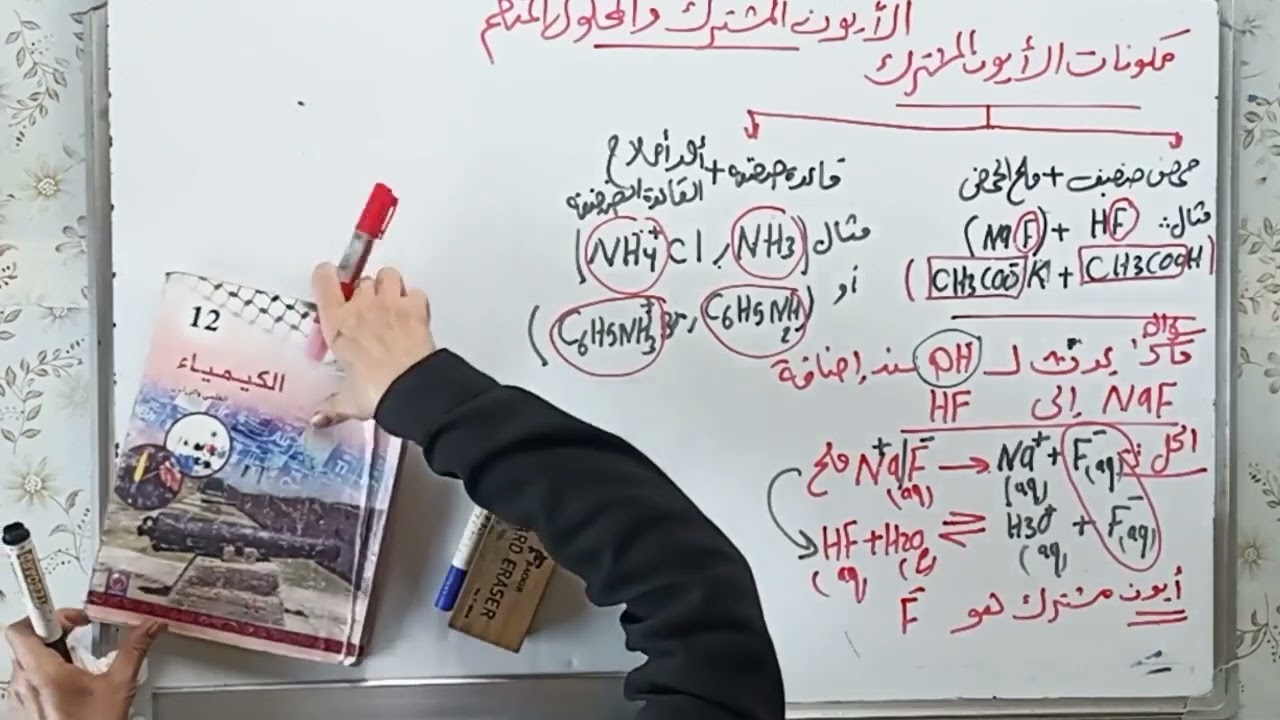 الأيون المشترك والمحلول المنظم
مكونات الأيون المشترك
حمض ضعيف + ملح الحمض
مثال: HF + (NaF)
(CH3COO⁻K⁺ + CH3COOH)
قاعدة ضعيفة + أحد أملاح
القاعدة الضعيفة
مثال (NH3 , NH4⁺Cl⁻)
أو
(C6H5NH2 , C6H5NH3⁺Br⁻)
سؤال
ماذا يحدث لـ PH عند إضافة
NaF إلى HF
الحل:
ملح Na⁺F⁻(aq) → Na⁺(aq) + F⁻(aq)
HF(aq) + H2O(l) ⇌ H3O⁺(aq) + F⁻(aq)
أيون مشترك هو F⁻
12
الكيمياء
ARD ERASER